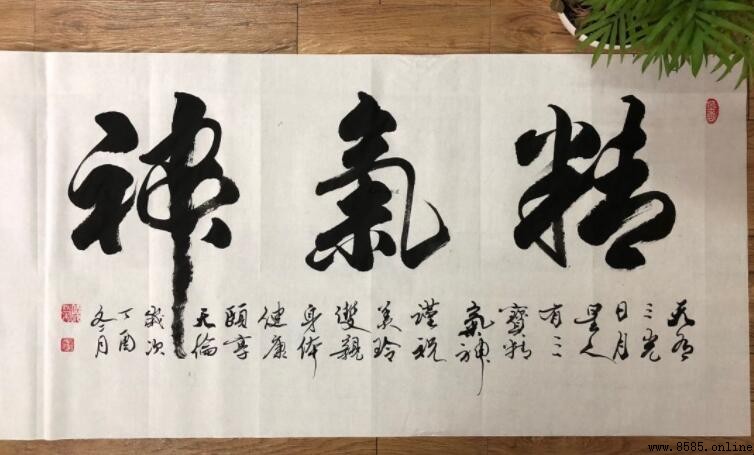 精氣神
天有
三光
日月
星人
有三
寶精
氣神
謹祝
美玲
雙親
身體
健康
頤享
天倫
歲次
丁酉
冬月
www.8585.online